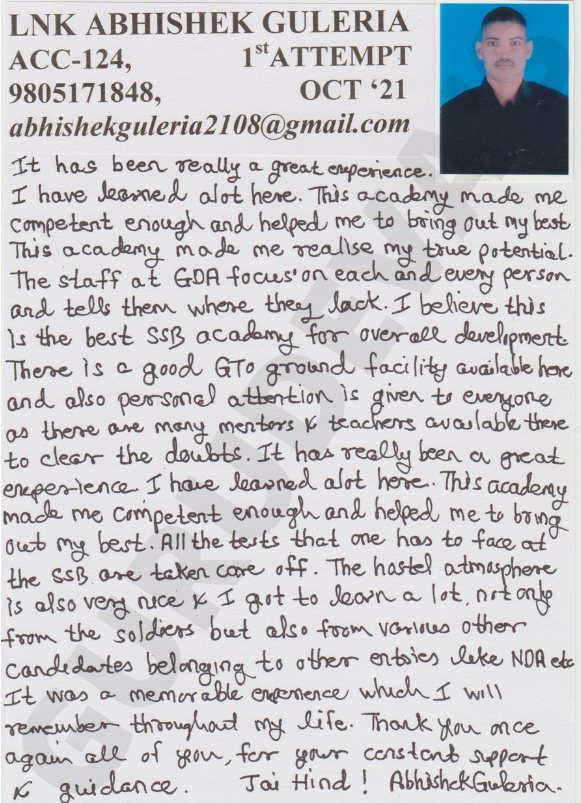 LNK ABHISHEK GULERIA
ACC-124, 1st ATTEMPT
9805171848, OCT ‘21
abhishekguleria2108@gmail.com
It has been really a great experience.
I have learned alot here. This academy made me
competent enough and helped me to bring out my best
This academy made me realise my true potential.
The staff at GDA focus' on each and every person
and tells them where they lack. I believe this
is the best SSB academy for overall development
There is a good GTO ground facility available here
and also personal attention is given to everyone
as there are many mentors & teachers available there
to clear the doubts. It has really been a great
experience. I have learned alot here. This academy
made me competent enough and helped me to bring
out my best. All the tests that one has to face at
the SSB are taken care off. The hostel atmosphere
is also very nice & I got to learn a lot, not only
from the soldiers but also from various other
candidates belonging to other entries like NDA etc
It was a memorable experience which I will
remember throughout my life. Thank you once
again all of you, for your constant support
& guidance. Jai Hind ! Abhishek Guleria.
GURUDEVA